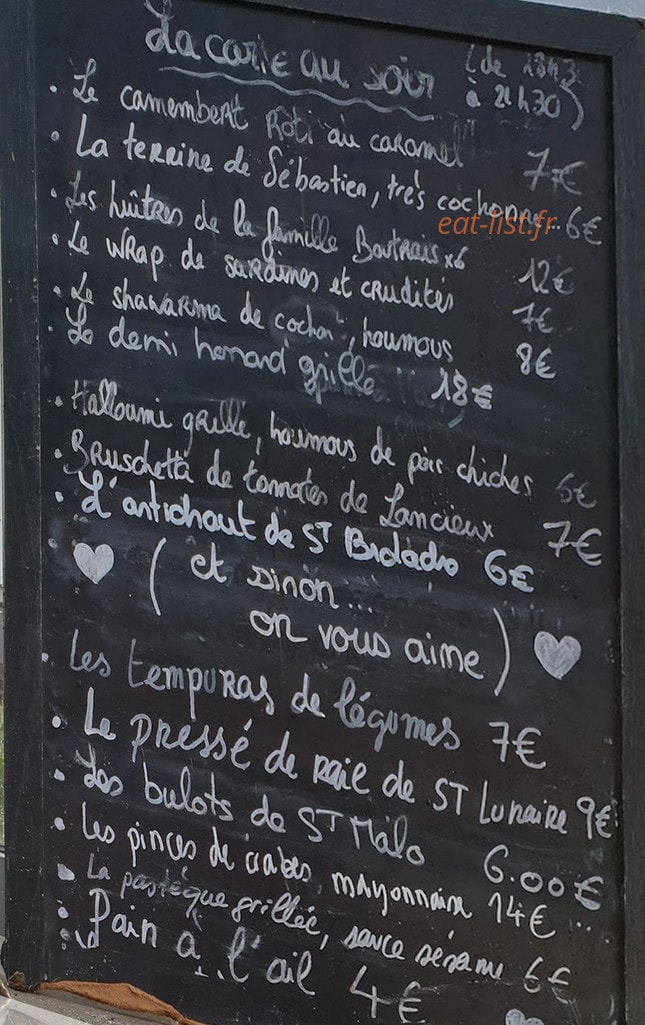 La carte du soir (de 18h3
à 21h30)
. Le camembert rôti au caramel 7€
. La terrine de Sébastien, très cochonne... 6€
eat-list.fr
. Les huîtres de la famille x6 12€
. Le wrap de sardines et crudités 7€
. Le shawarma de cochon, houmous 8€
. Le demi homard grillé 18€
. Halloumi grillé, houmous de pois chiches 6€
. Bruschetta de tomates de Lancieux 7€
. L'artichaut de ST 6€
(et sinon...
on vous aime)
. Les tempuras de légumes 7€
. Le pressé de raie de ST Lunaire 9€
. Les bulots de ST Malo 6.00€
. Les pinces de crabes, mayonnaise 14€ ...
. La pastèque grillée, sauce sésame 6€
. Pain à l'ail 4€